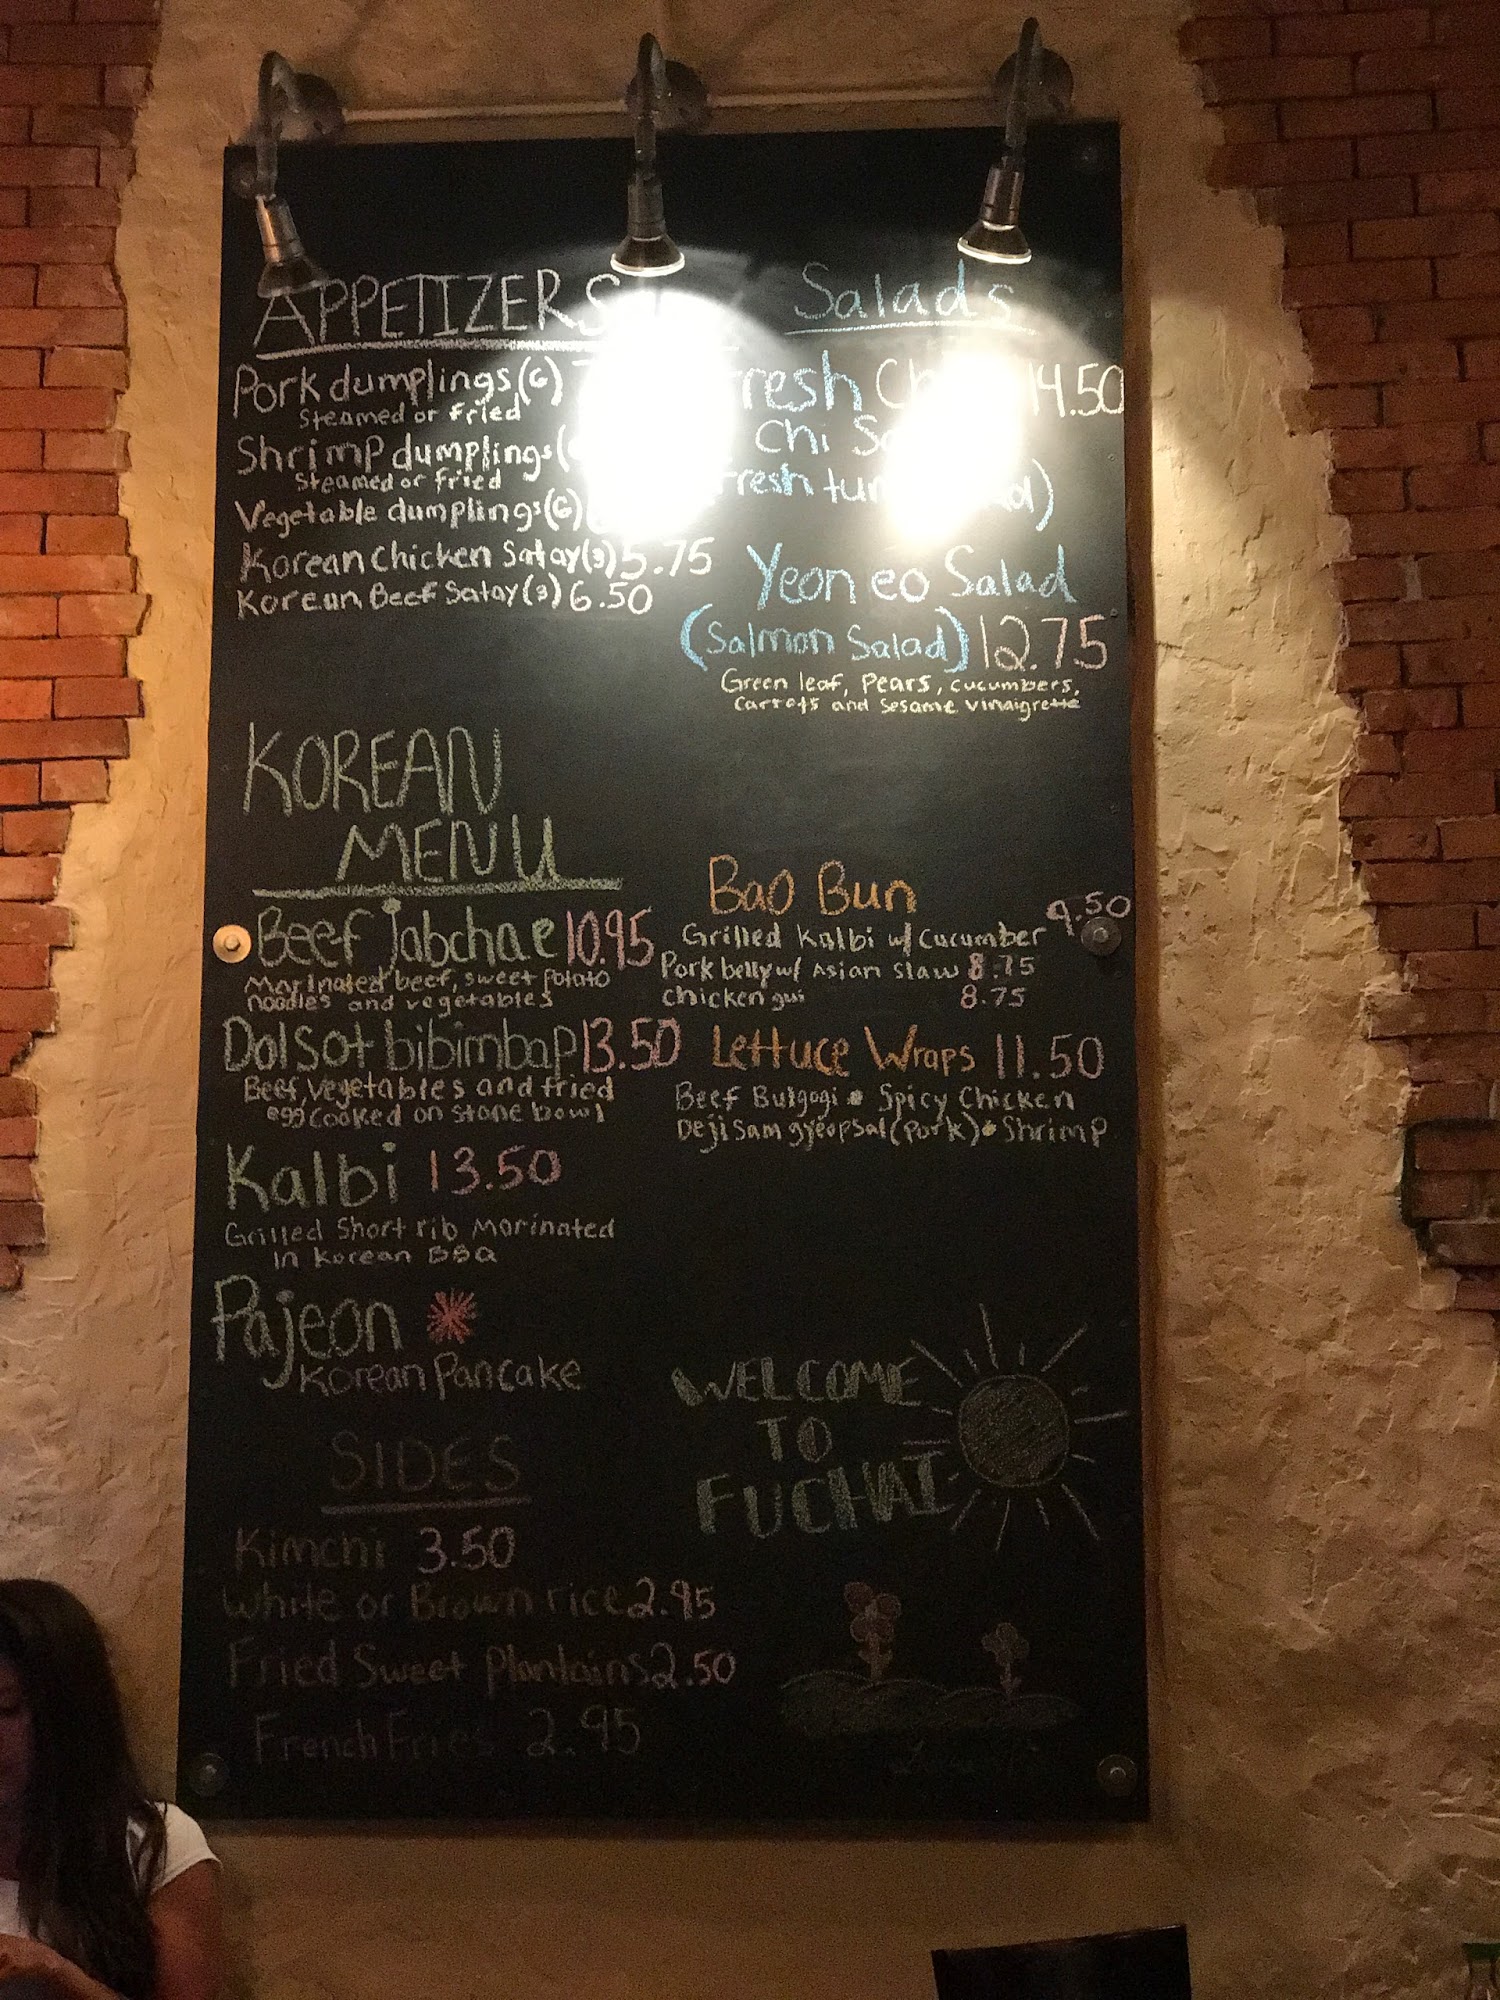 APPETIZERS
Pork dumplings (6)
Steamed or fried
Shrimp dumplings
Steamed or fried
Vegetable dumplings (6)
Korean chicken Satay (3) 5.75
Korean Beef Satay (3) 6.50
Salads
Fresh 14.50
Chi
Fresh
Yeon eo Salad
(Salmon Salad) 12.75
Green leaf, pears, cucumbers,
carrots and sesame vinaigrette
KOREAN
MENU
Beef jabchae 10.95
Marinated beef, sweet potato
noodles and vegetables
Dolsot bibimbap 13.50
Beef, vegetables and fried
egg cooked on stone bowl
Kalbi 13.50
Grilled short rib marinated
in korean BBQ
Pajeon
Korean Pancake
Bao Bun
Grilled Kalbi w/ cucumber 9.50
Pork belly w/ Asian slaw 8.75
chicken gui 8.75
Lettuce Wraps 11.50
Beef Bulgogi • Spicy Chicken
Deji Sam gyeopsal (Pork) • Shrimp
SIDES
Kimchi 3.50
White or Brown rice 2.95
Fried Sweet plantains 2.50
French Fries 2.95
WELCOME
TO
FUCHAI